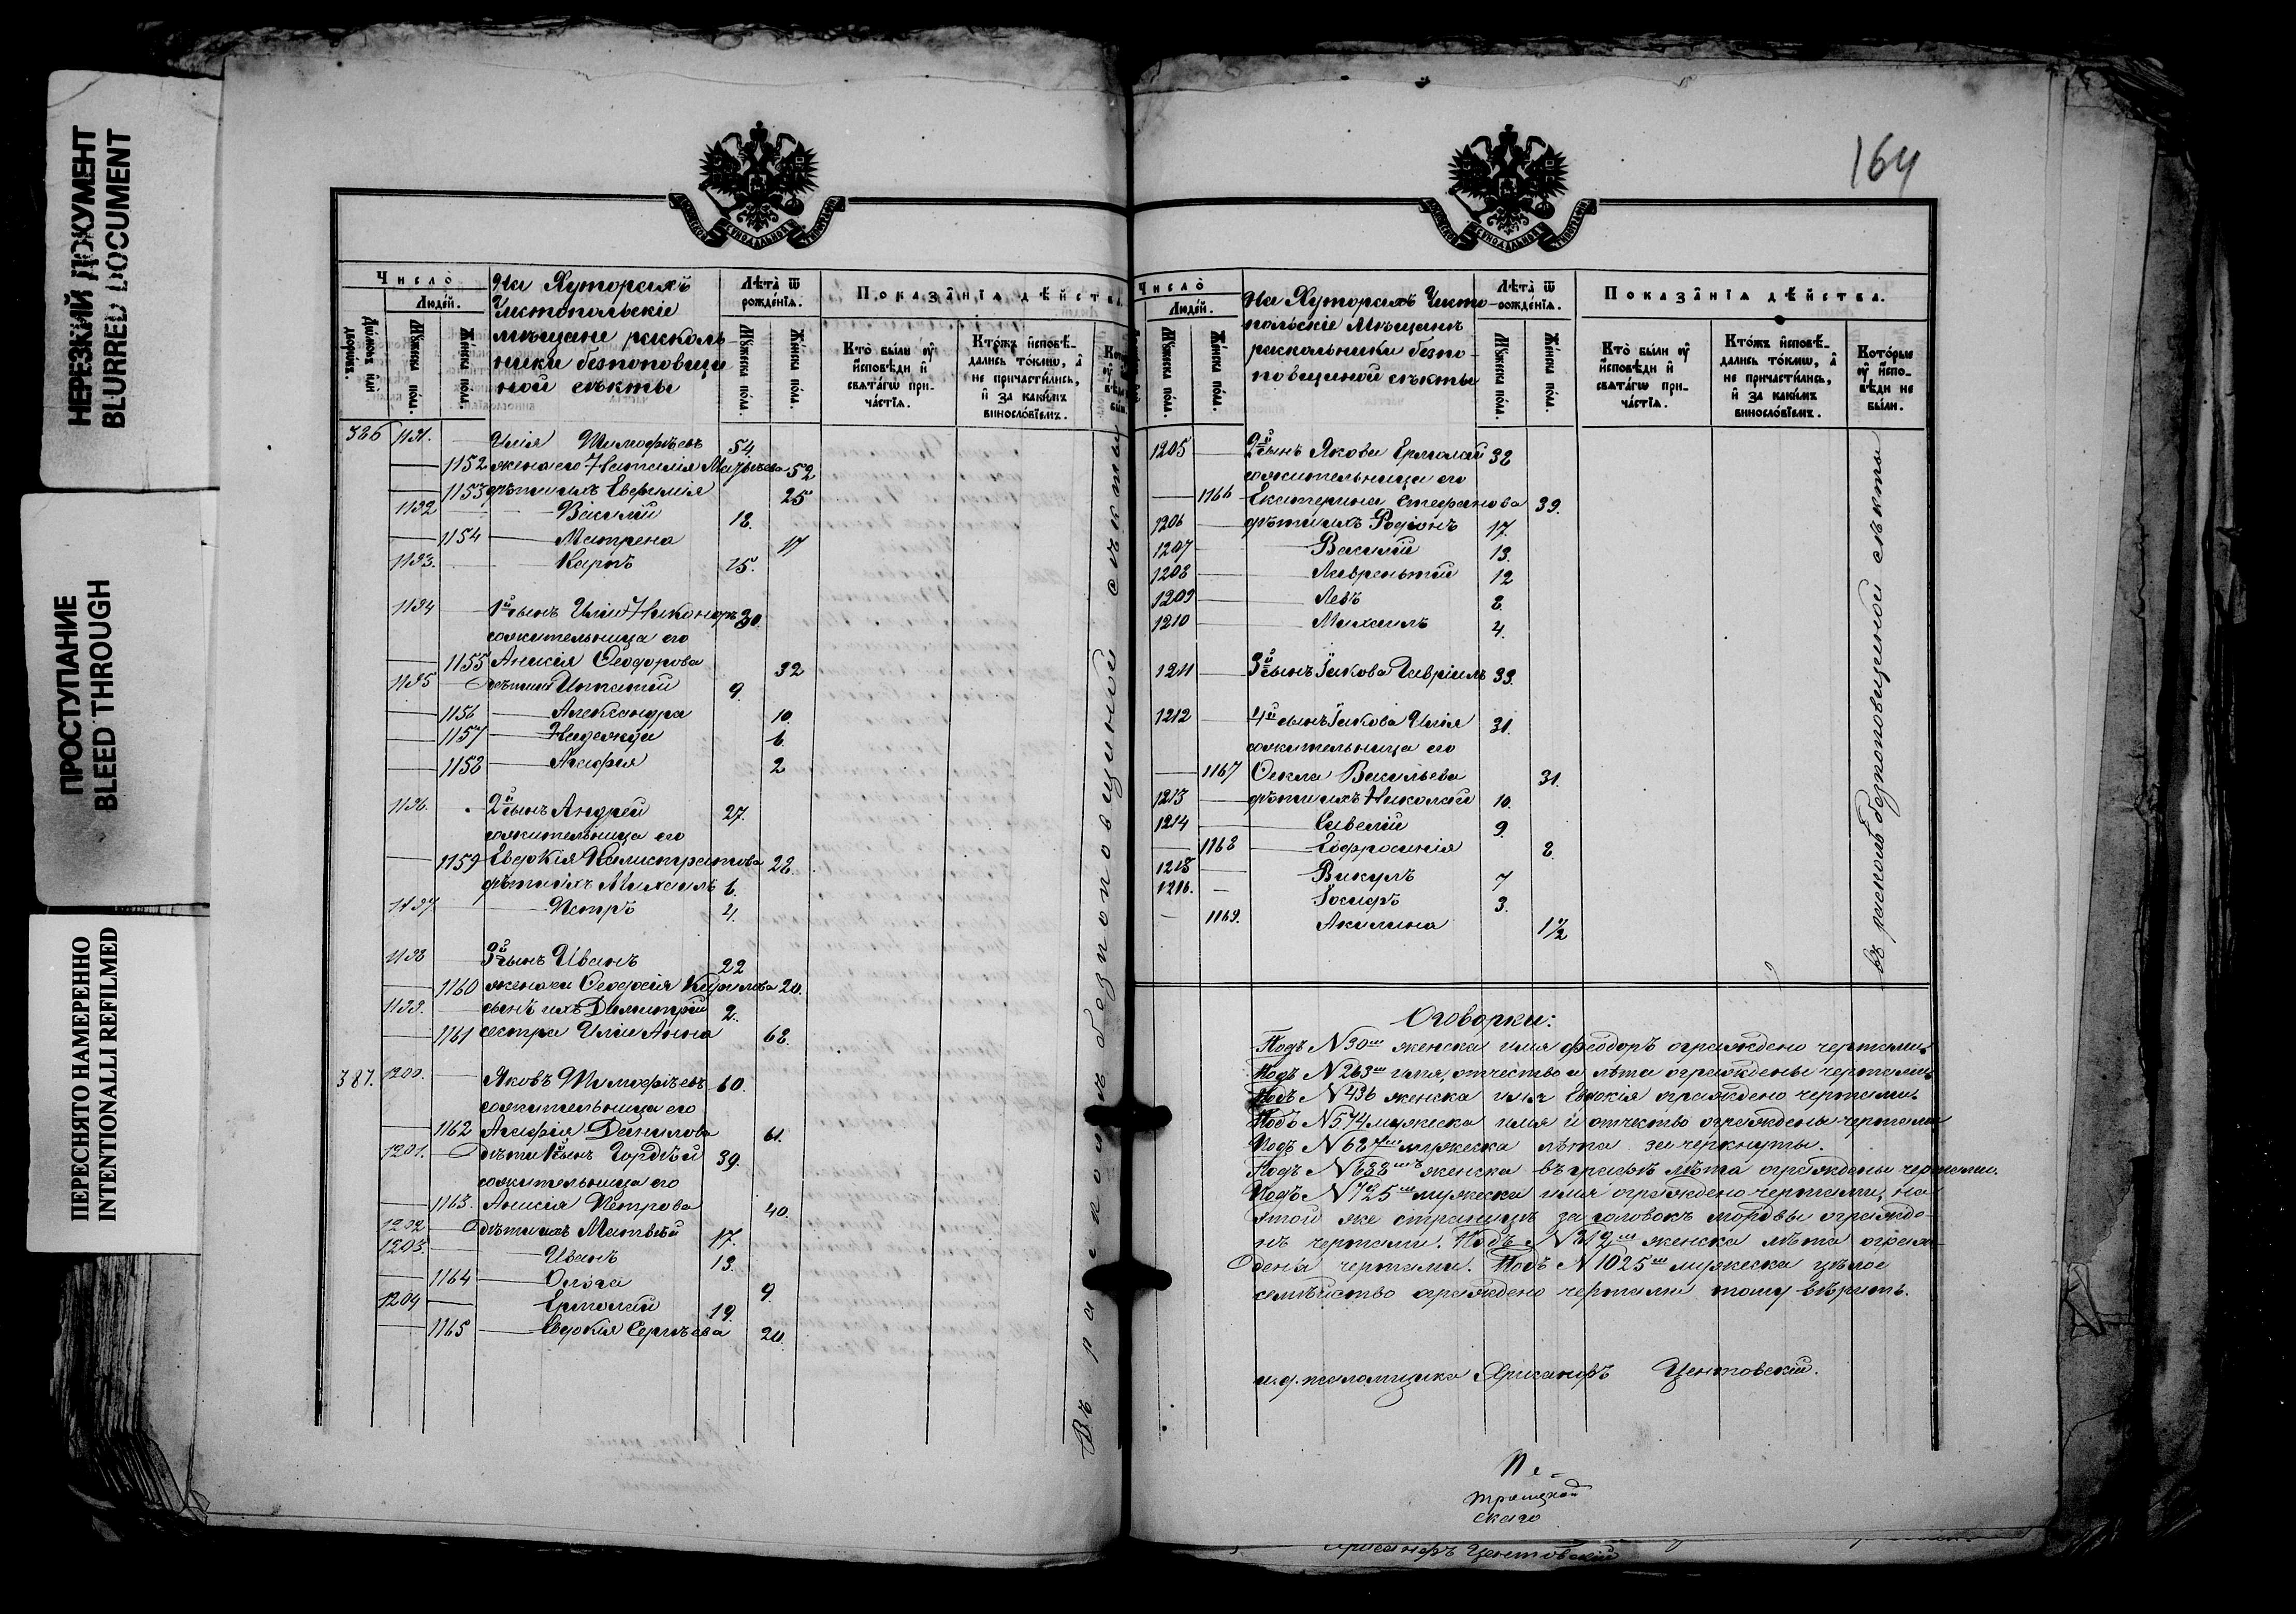 НЕРЕЗКИЙ ДОКУМЕНТ
BLURRED DOCUMENT
ПРОСТУПАНИЕ
BLEED THROUGH
ПЕРЕСНЯТО НАМЕРЕННО
INTENTIONALLI REFILMED
Число̀
Люде́й.
Дворо́въ.
Мꙋ́жеска по́ла.
Же́нска по́ла.
На Хуторахъ
Чистопольскіе
мѣщане расколь-
ники безпоповщи
ной секты
Лѣта̀ ѿ
рожде́нїѧ.
Мꙋ́жеска по́ла.
Же́нска по́ла.
Показа̑нїѧ дѣ́йства.
Кто̀ бы́ли ᲂу҆
и҆сповѣ́ди и҆
свѧта́гѡ при-
ча́стїѧ.
Кто́жъ и҆сповѣ́-
дались то́кмѡ, а҆
не причасти́лись,
и҆ за каки́мъ
виносло́вїемъ.
386 1191. Илія Тимофѣевъ 54
1152 жена его Наталія Матвѣева 52
1153 дѣти ихъ Евфимія 25
1192 Василій 18.
1154 Матрена 17
1193. Карпъ 15.
1194 1й сынъ Иліи Никоноръ 30.
сожительница его
1155 Анисія Ѳеодорова 32
1195 дѣти ихъ Ипатій 9.
1156 Александра 10.
1157 Надежда 6.
1158 Агафія 2
1196. 2й сынъ Андрей 27.
сожительница его
1159 Евдокія Калистратова 28.
дѣти ихъ Михаилъ 6.
1197. Петръ 4.
1198 3й сынъ Иванъ 22
1160 жена его Ѳеодосія Кирилова 20.
1199. сынъ ихъ Димитрій 2.
1161 сестра Иліи Анна 68.
387. 1200. Яковъ Тимофѣевъ 60.
сожительница его
1162 Агафія Данилова 61.
1201. дѣти 1й сынъ Гордѣй 39.
сожительница его
1163. Анисія Петрова 40.
1202 дѣти ихъ Матвѣй 17.
1203. Иванъ 13.
1164 Ольга 9.
1204 Ермолай 19.
1165 Евдокія Сергѣева 20.
Въ расколѣ безпоповщинной секты
164
Число̀
Люде́й.
Мꙋ́жеска по́ла.
Же́нска по́ла.
На Хуторахъ Чисто
польскіе Мѣщане
раскольники безпо-
повщиной секты
Лѣта̀ ѿ
рожде́нїѧ.
Мꙋ́жеска по́ла.
Же́нска по́ла.
Показа̑нїѧ дѣ́йства.
Кто̀ бы́ли ᲂу҆
и҆сповѣ́ди и҆
свѧта́гѡ при-
ча́стїѧ.
Кто́жъ и҆сповѣ́-
дались то́кмѡ, а҆
не причасти́лись,
и҆ за каки́мъ
виносло́вїемъ.
Кото́рые
ᲂу҆ и҆спо-
вѣ́ди не
бы́ли.
1205 2й сынъ Якова Ермолай 38
сожительница его
1166 Екатерина Стефанова 39.
1206 дѣти ихъ Родіонъ 17.
1207 Василій 13.
1208 Лаврентій 12
1209 Левъ 8.
1210 Михаилъ 4.
1211 3й сынъ Іакова Гавріилъ 33.
1212 4й сынъ Іакова Илія 31.
сожительница его
1167 Ѳекла Васильева 31.
1213 дѣти ихъ Николай 10.
1214 Савелій 9.
1168 Евфросинія 8.
1215 Викулъ 7
1216. Іосифъ 3.
1169. Акилина 1 1/2
въ расколѣ безпоповщинной секты
Оговорки:
Подъ №30мъ женска имя Ѳеодоръ ограждено чертами.
Подъ №263мъ имя, отчество и лѣта ограждены чертами.
Подъ №436 женска имя Евдокія ограждено чертами.
Подъ №574 мужеска имя и отчество ограждены чертами
Подъ №627мъ мужеска лѣта зачеркнуты.
Подъ №688мъ женска въ графѣ лѣта ограждены чертами.
Подъ №725мъ мужеска имя ограждено чертами, на
этой же страницѣ заголовокъ мордвы огражде-
нъ чертами. Подъ №819мъ женска лѣта ограж-
дена чертами. Подъ №1025мъ мужеска цѣлое
семѣйство ограждено чертами тому вѣрить.
и.д. псаломщика Хрисанфъ Центовскій.
Пе-
трецкой
скаго
Хрисанфъ Центовскій